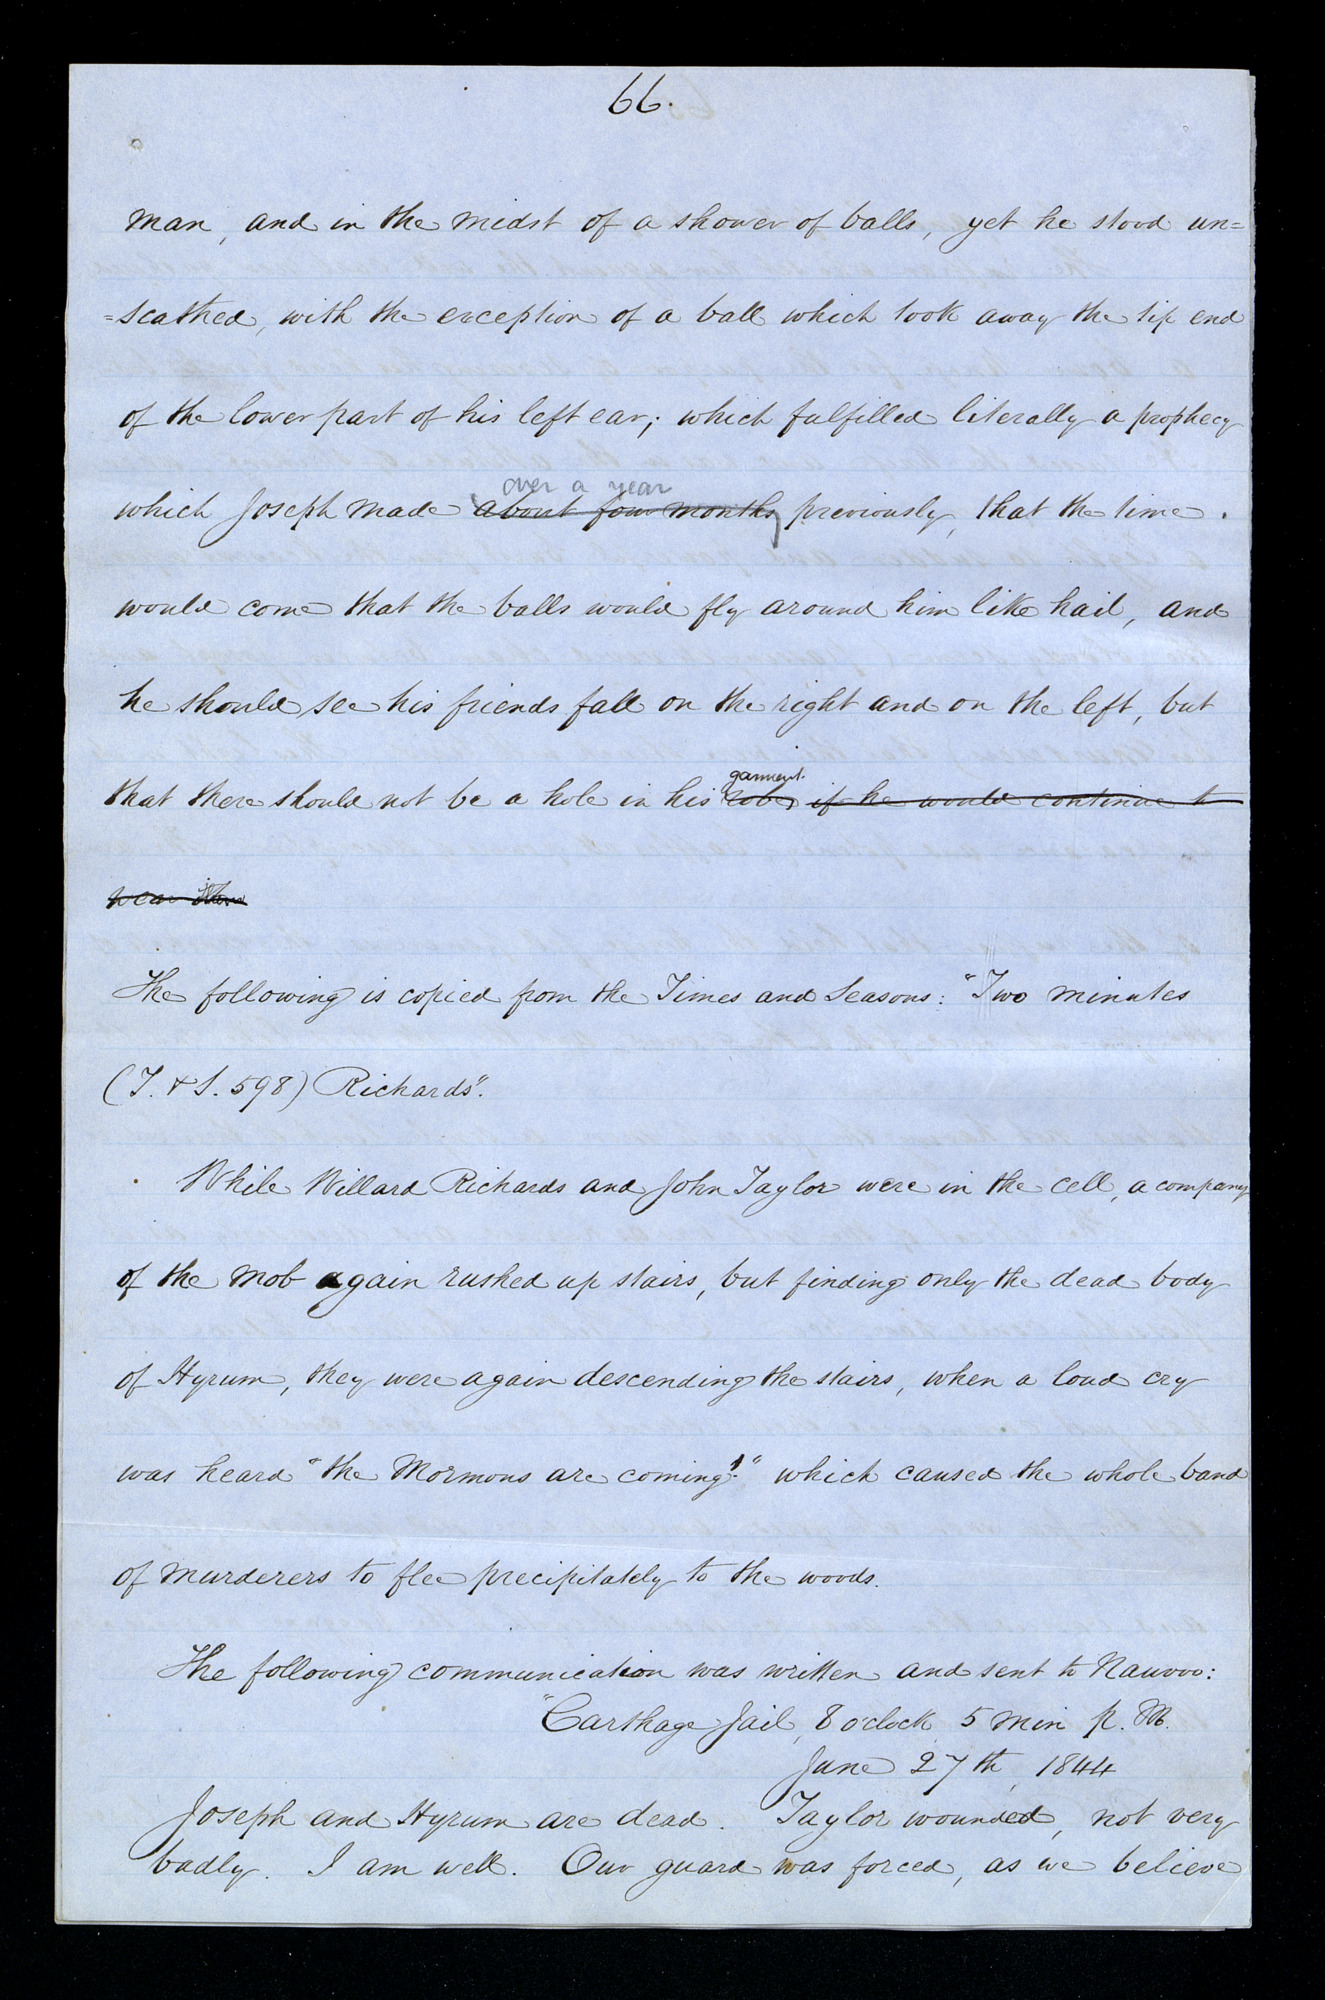 66.
man, and in the midst of a shower of balls, yet he stood un=
=scathed, with the exception of a ball which took away the tip end
of the lower part of his left ear; which fulfilled literally a prophecy
over a year
which Joseph made about four months previously, that the time
would come that the balls would fly around him like hail, and
he should see his friends fall on the right and on the left, but
garment.
that there should not be a hole in his robe, if he would continue to
wear
The following is copied from the Times and Seasons: "Two minutes
(T. & S. 598) Richards".
While Willard Richards and John Taylor were in the cell, a company
of the mob again rushed up stairs, but finding only the dead body
of Hyrum, they were again descending the stairs, when a loud cry
was heard "the Mormons are coming!" which caused the whole band
of murderers to flee precipitately to the woods.
The following communication was written and sent to Nauvoo:
"Carthage Jail, 8 o'clock 5 min p. M.
June 27th, 1844
Joseph and Hyrum are dead. Taylor wounded, not very
badly. I am well. Our guard was forced, as we believe